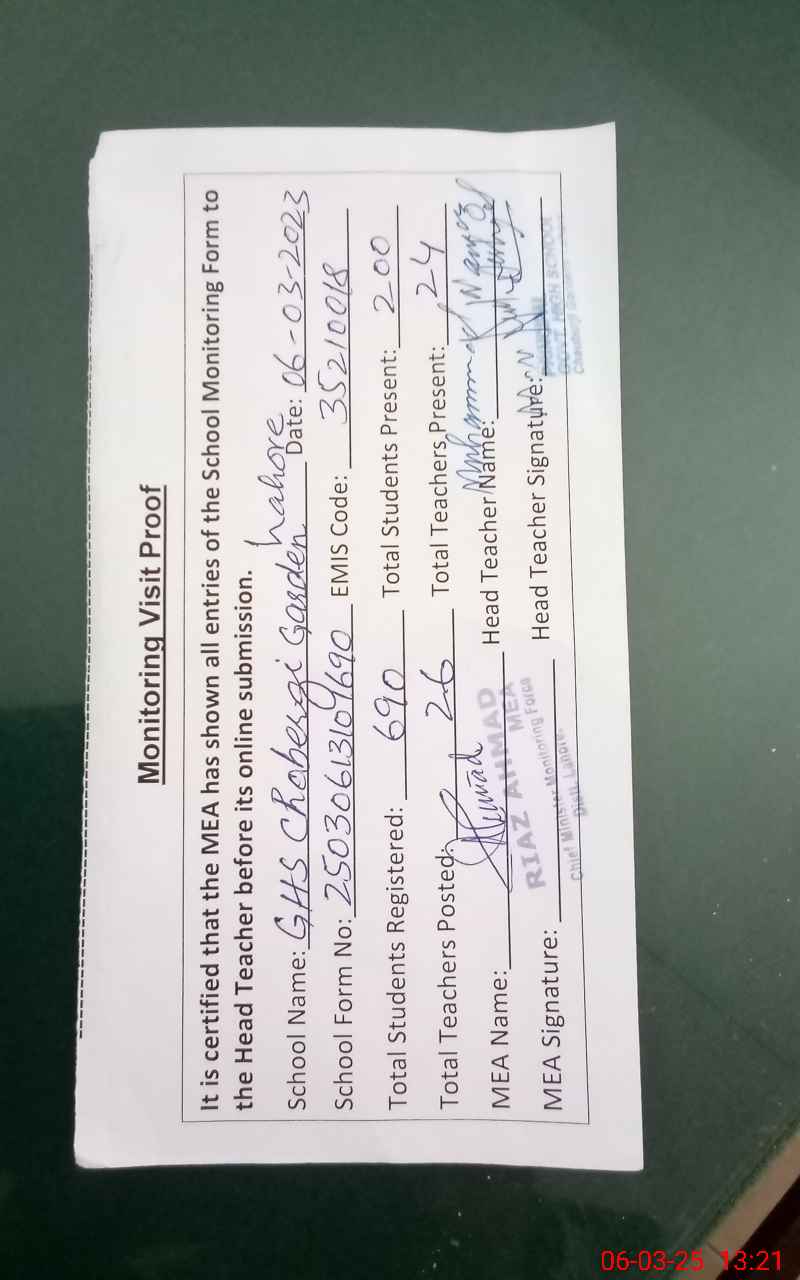 Monitoring Visit Proof
It is certified that the MEA has shown all entries of the School Monitoring Form to
the Head Teacher before its online submission.
School Name: GHS Chobergi Garden Lahore Date: 06-03-2023
School Form No: EMIS Code: 35210018
Total Students Registered: 690 Total Students Present: 200
Total Teachers Posted: 26 Total Teachers Present: 24
MEA Name: Head Teacher Name: Muhammad
MEA Signature: Head Teacher Signature:
RIAZ AHMAD
MEA
Chief Minister Monitoring Force
Distt. Lahore.
HIGH SCHOOL
06-03-25 13:21